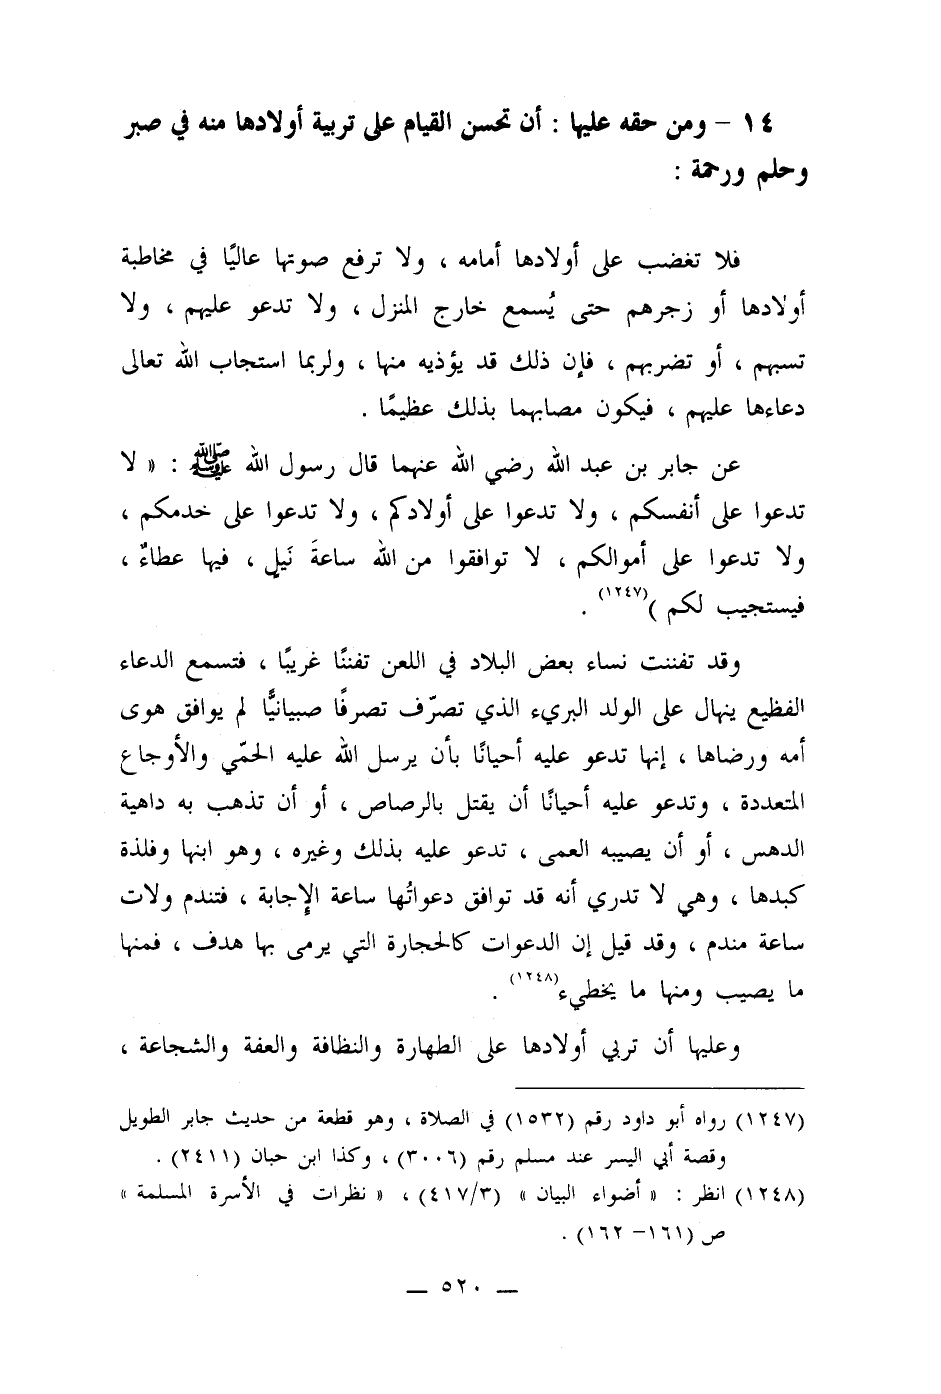 ١٤ – ومن حقه عليها : أن تحسن القيام على تربية أولادها منه في صبر
وحلم ورحمة :
فلا تغضب على أولادها أمامه ، ولا ترفع صوتها عاليًا في مخاطبة
أولادها أو زجرهم حتى يُسمع خارج المنزل ، ولا تدعو عليهم ، ولا
تسبهم ، أو تضربهم ، فإن ذلك قد يؤذيه منها ، ولربما استجاب الله تعالى
دعاءها عليهم ، فيكون مصابهما بذلك عظيمًا .
عن جابر بن عبد الله رضي الله عنهما قال رسول الله ﷺ : « لا
تدعوا على أنفسكم ، ولا تدعوا على أولادكم ، ولا تدعوا على خدمكم ،
ولا تدعوا على أموالكم ، لا توافقوا من الله ساعةَ نَيلٍ ، فيها عطاءٌ ،
فيستجيب لكم )(١٢٤٧) .
وقد تفننت نساء بعض البلاد في اللعن تفننًا غريبًا ، فتسمع الدعاء
الفظيع ينهال على الولد البريء الذي تصرّف تصرفًا صبيانيًّا لم يوافق هوى
أمه ورضاها ، إنها تدعو عليه أحيانًا بأن يرسل الله عليه الحمّي والأوجاع
المتعددة ، وتدعو عليه أحيانًا أن يقتل بالرصاص ، أو أن تذهب به داهية
الدهس ، أو أن يصيبه العمى ، تدعو عليه بذلك وغيره ، وهو ابنها وفلذة
كبدها ، وهي لا تدري أنه قد توافق دعواتُها ساعة الإجابة ، فتندم ولات
ساعة مندم ، وقد قيل إن الدعوات كالحجارة التي يرمى بها هدف ، فمنها
ما يصيب ومنها ما يخطيء(١٢٤٨) .
وعليها أن تربي أولادها على الطهارة والنظافة والعفة والشجاعة ،
(١٢٤٧) رواه أبو داود رقم (١٥٣٢) في الصلاة ، وهو قطعة من حديث جابر الطويل
وقصة أبي اليسر عند مسلم رقم (٣٠٠٦) ، وكذا ابن حبان (٢٤١١) .
(١٢٤٨) انظر : « أضواء البيان » (٤١٧/٣) ، « نظرات في الأسرة المسلمة »
ص (١٦١– ١٦٢) .
— ٥٢٠ —